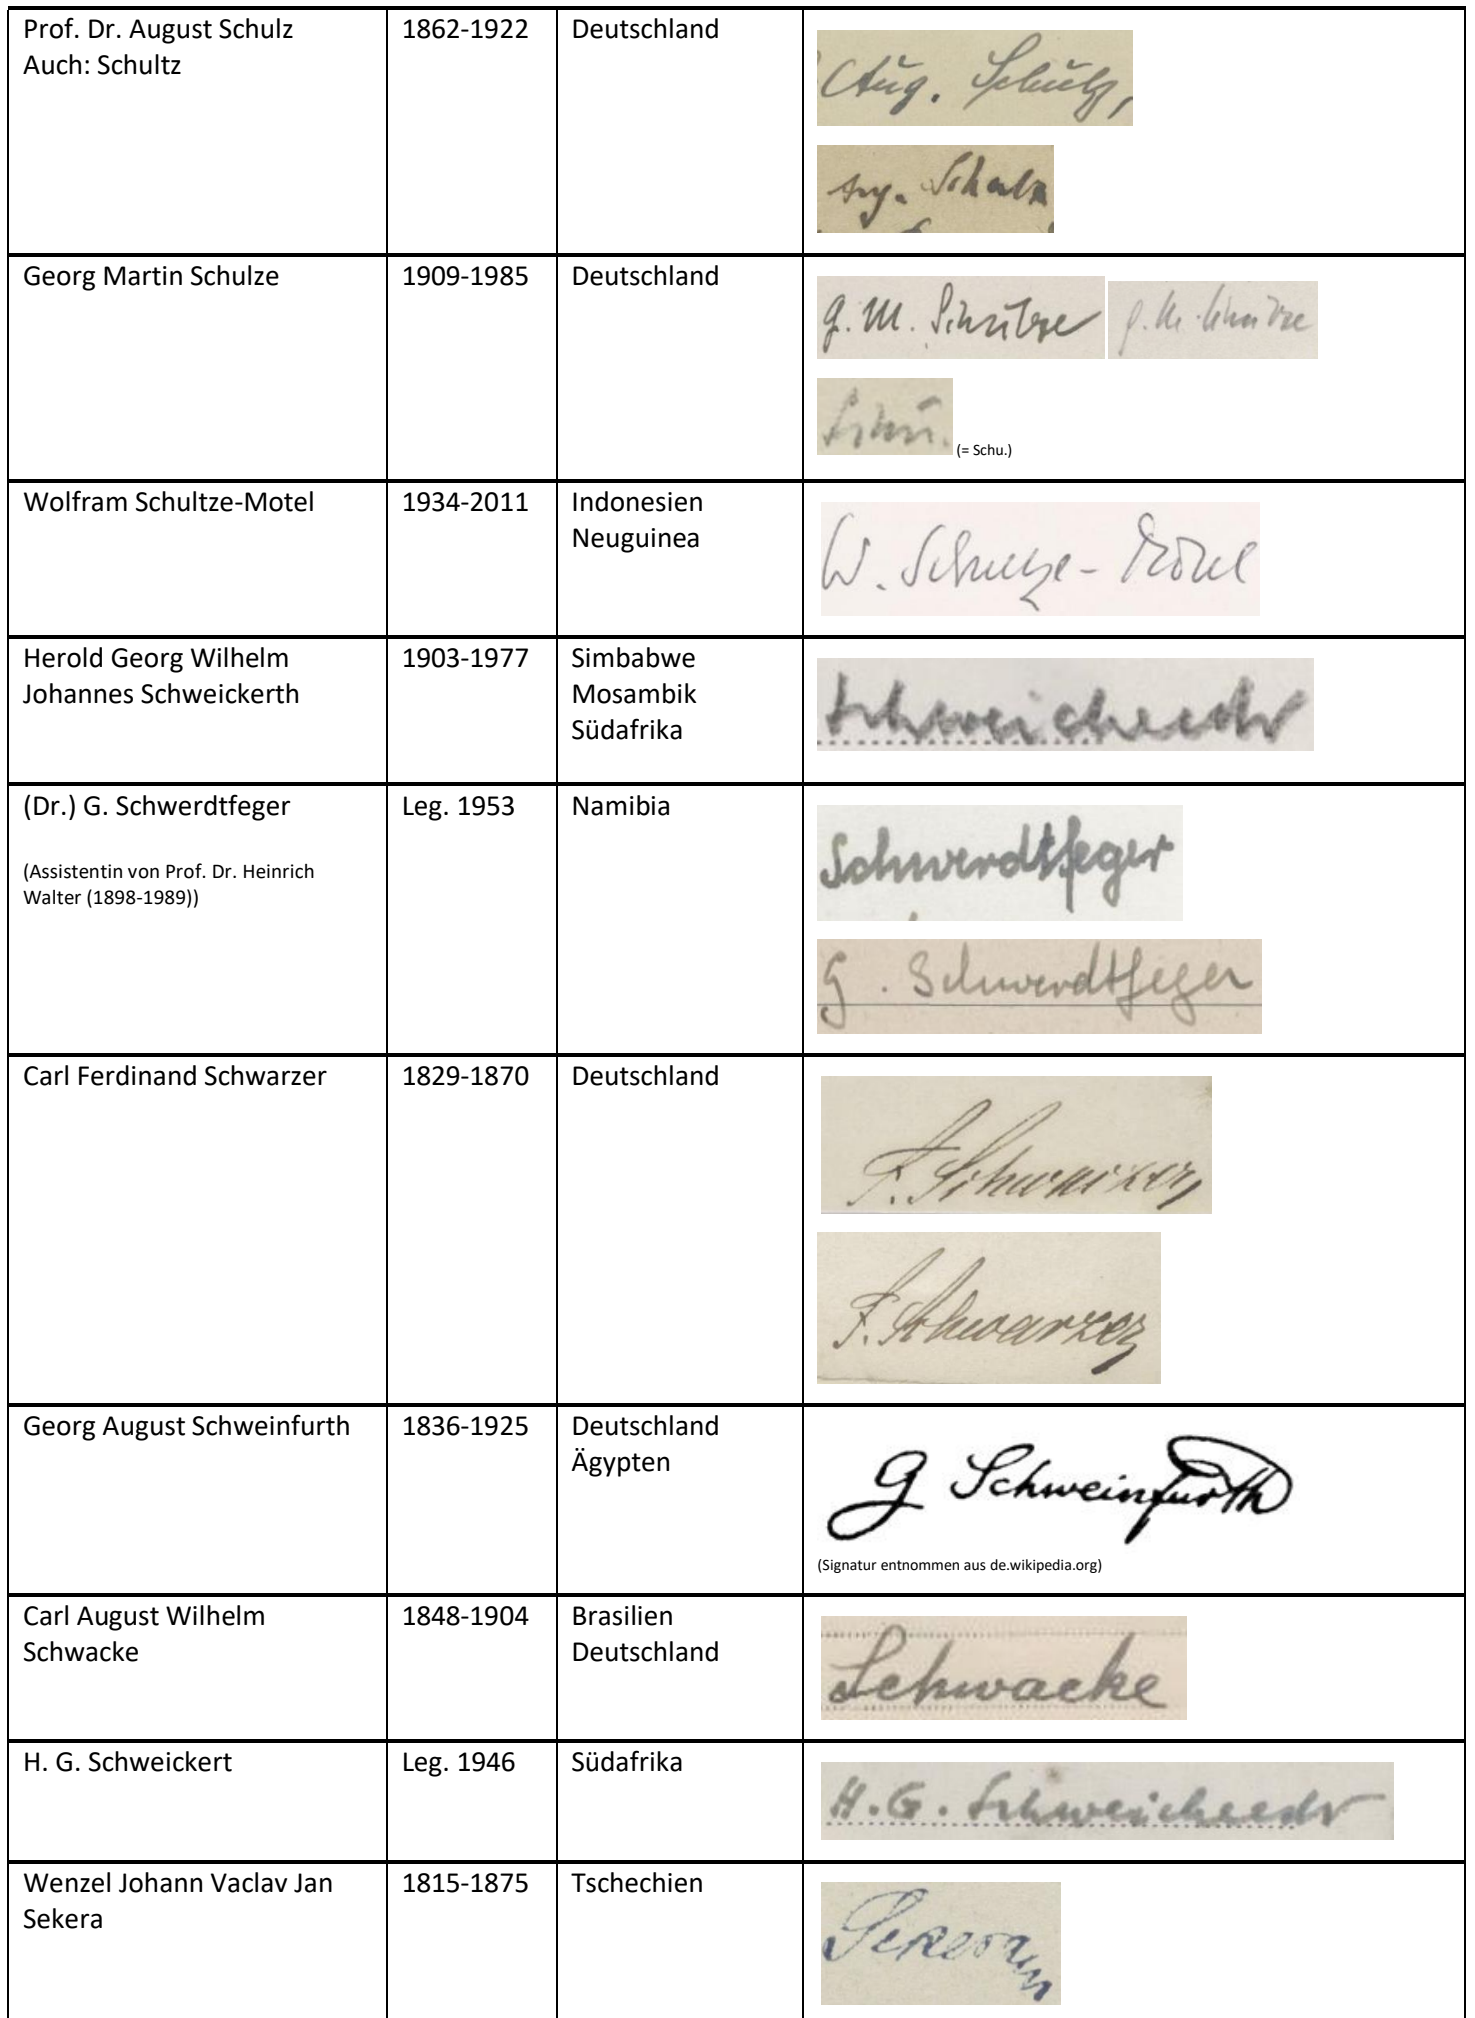 Prof. Dr. August Schulz
Auch: Schultz
1862-1922
Deutschland
Aug. Schulz,
Aug. Schulz
Georg Martin Schulze
1909-1985
Deutschland
G. M. Schulze
G. M. Schulze
Schu.
(= Schu.)
Wolfram Schultze-Motel
1934-2011
Indonesien
Neuguinea
W. Schultze-Motel
Herold Georg Wilhelm
Johannes Schweickerth
1903-1977
Simbabwe
Mosambik
Südafrika
Schweickerdt
(Dr.) G. Schwerdtfeger
(Assistentin von Prof. Dr. Heinrich
Walter (1898-1989))
Leg. 1953
Namibia
Schwerdtfeger
G. Schwerdtfeger
Carl Ferdinand Schwarzer
1829-1870
Deutschland
F. Schwarzer
F. Schwarzer
Georg August Schweinfurth
1836-1925
Deutschland
Ägypten
G Schweinfurth
(Signatur entnommen aus de.wikipedia.org)
Carl August Wilhelm
Schwacke
1848-1904
Brasilien
Deutschland
Schwacke
H. G. Schweickert
Leg. 1946
Südafrika
H. G. Schweickerdt
Wenzel Johann Vaclav Jan
Sekera
1815-1875
Tschechien
Sekera